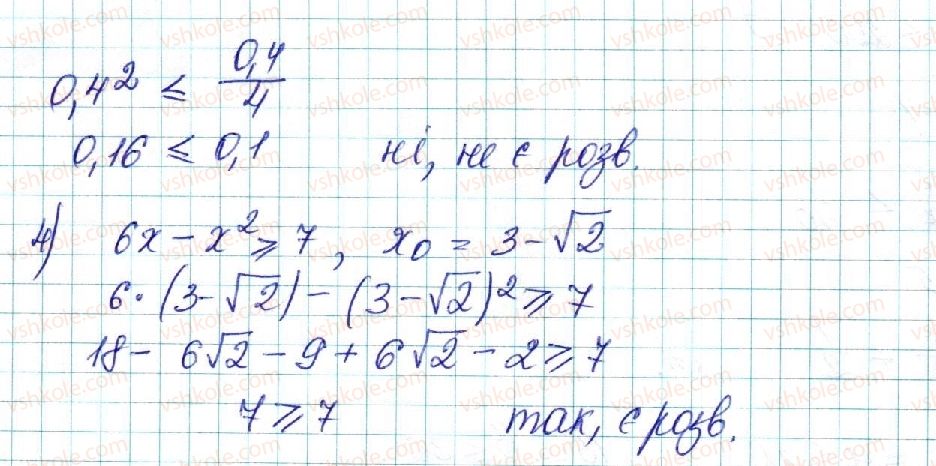 0,4² ≤ 0,4/4
0,16 ≤ 0,1 ні, не є розв.
4) 6x − x² ≥ 7, x₀ = 3 − √2
6 · (3 − √2) − (3 − √2)² ≥ 7
18 − 6√2 − 9 + 6√2 − 2 ≥ 7
7 ≥ 7 так, є розв.
vshkole.com